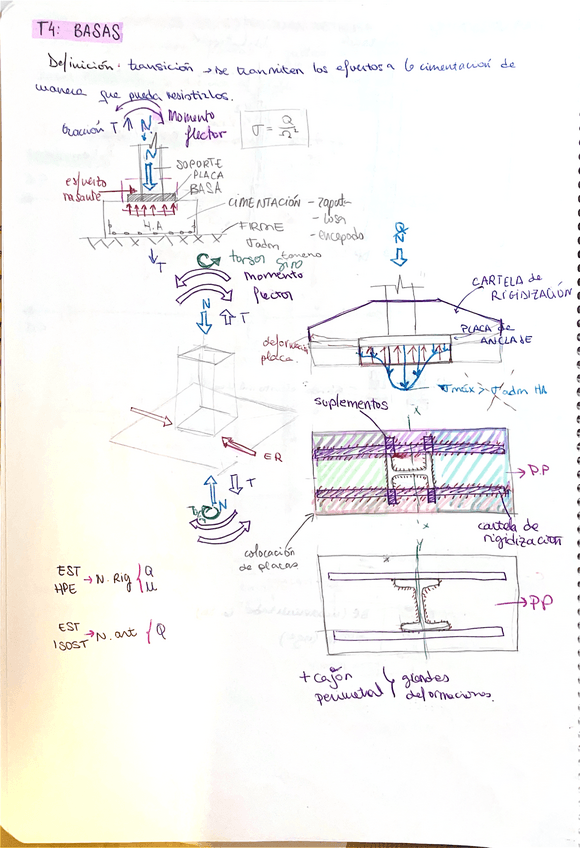 T4: BASAS
Definición: transición → se transmiten los esfuerzos a la cimentación de
manera que pueda resistirlos.
tracción T N Momento
flector
σ = Q
Ω²
N
SOPORTE
PLACA
BASA
esfuerzo
rasante
4.A
CIMENTACIÓN - zapata
- losa
- encepado
FIRME
σadm
terreno
T
torsor giro
momento
flector
N
T
N
CARTELA de
RIGIDIZACIÓN
PLACA de
ANCLAJE
deformación
placa.
σmáx > σadm HA
suplementos
x
ER
T
N
P.P
x
cartela de
rigidización
colocación
de placas
y
x
PP
EST
HPE → N. Rig { Q
M
EST
ISOST → N. art { Q
+ cajón
perimetral
grandes
deformaciones.